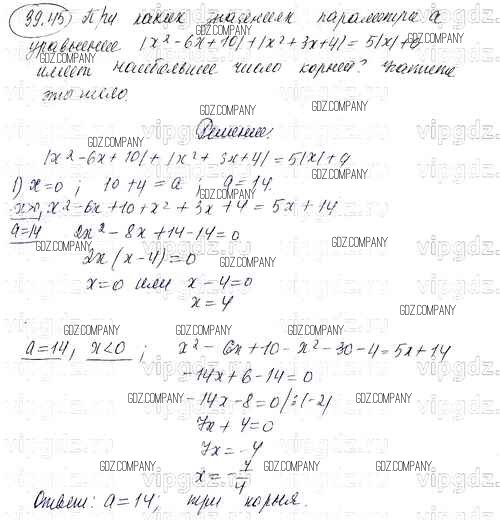 39.45) При каких значениях параметра a
уравнение |x²-6x+10|+|x²+3x+4|=5|x|+a
имеет наибольшее число корней? Укажите
это число.
Решение:
|x²-6x+10|+|x²+3x+4|=5|x|+a
1) x=0; 10+4=a; a=14.
x>0, x²-6x+10+x²+3x+4=5x+14
a=14 2x²-8x+14-14=0
2x(x-4)=0
x=0 или x-4=0
x=4
a=14, x<0; x²-6x+10-x²-30-4=5x+14
-14x+6-14=0
-14x-8=0/:(-2)
7x+4=0
7x=-4
x=-7/4
Ответ: a=14; три корня.
GDZ.COMPANY
vipgdz.